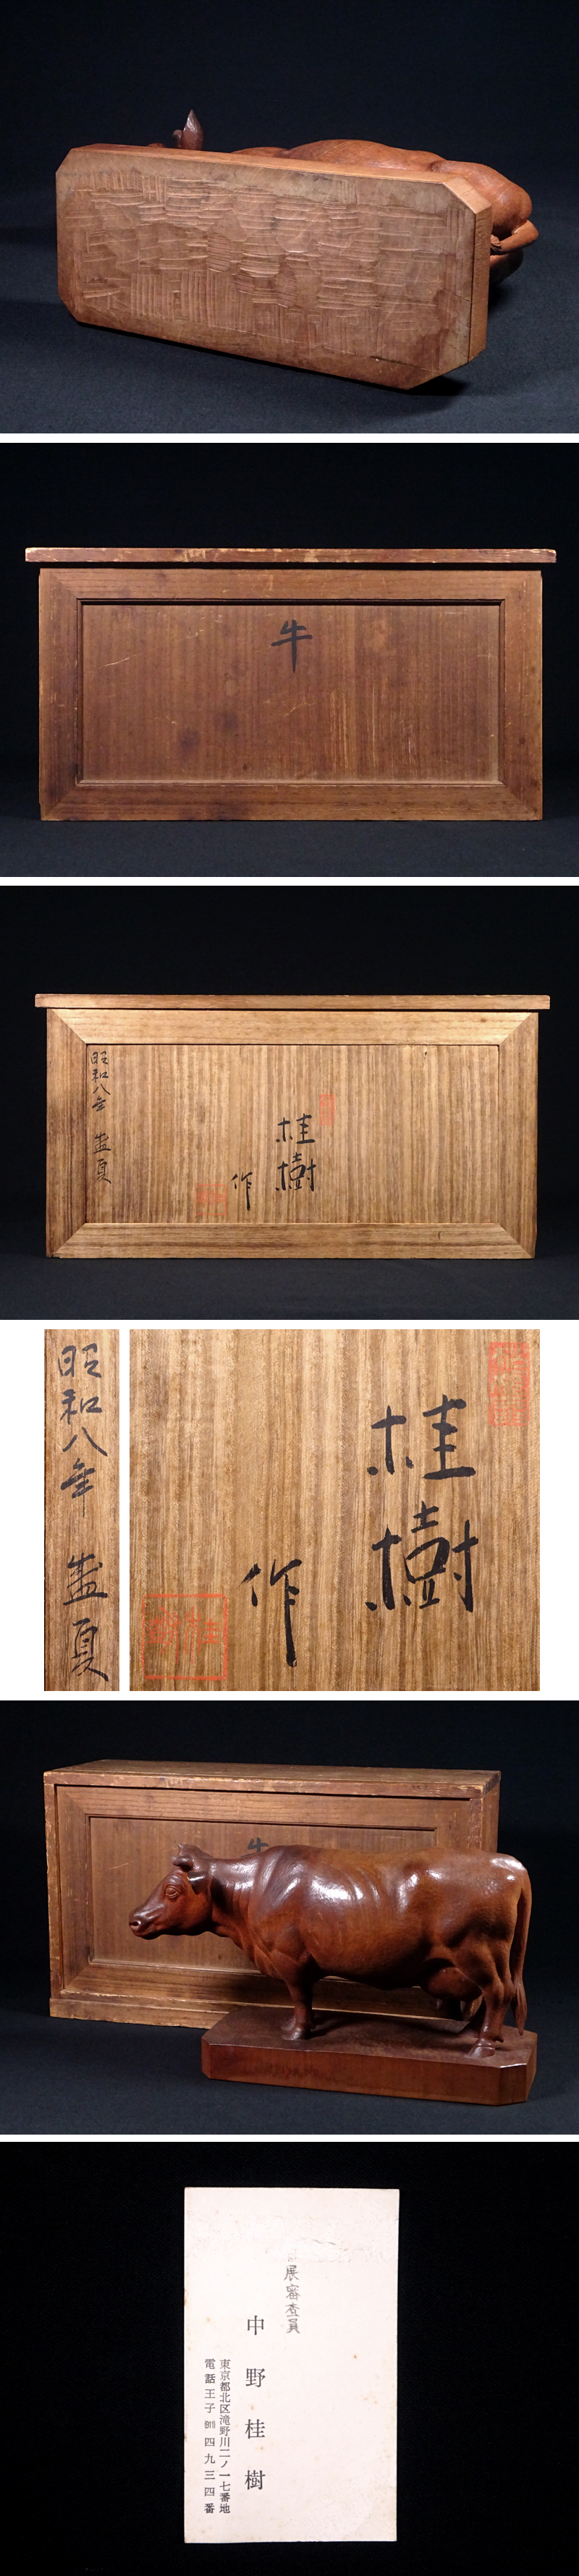 牛
昭和八年 孟夏
桂樹
作
昭和八年 孟夏
桂樹
作
牛
展審査員
中野桂樹
東京都北区滝野川二ノ一七番地
電話王子 四九三四番